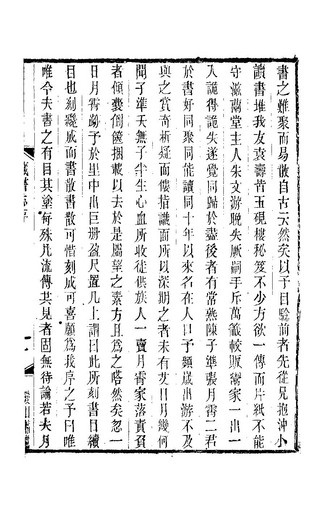 書之難聚而易散自古云然矣以予目驗前者先從兄抱沖小
讀書堆我友袁壽皆五硯樓秘笈不少方欲一傳而片紙不能
守滋蘭堂主人朱文游脫失厥嗣手斥萬籤較販鬻家一出一
入詭得詭失遂覺同歸於盡後者有常熟陳子準張月霄二君
於書好同聚同能讀同十年以來名在人口予頻歲出游不及
與之賞奇析疑而儻指尤遇所以深期之者未有艾日月幾何
聞子準天無子半生心血所收徒供族人一賣月霄家落責負
者傾囊倒篋捆載以去於是屬望之素方且爲之嗒然矣忽一
日月霄訪予於里中出巨册盈尺置几上謂曰此所刻書目續
目也剞劂成而書散書散可惜刻成可喜願爲我序之予曰唯
唯今夫書之有目其塗每殊凡流傳共見者固無待論若夫月
藏書志序